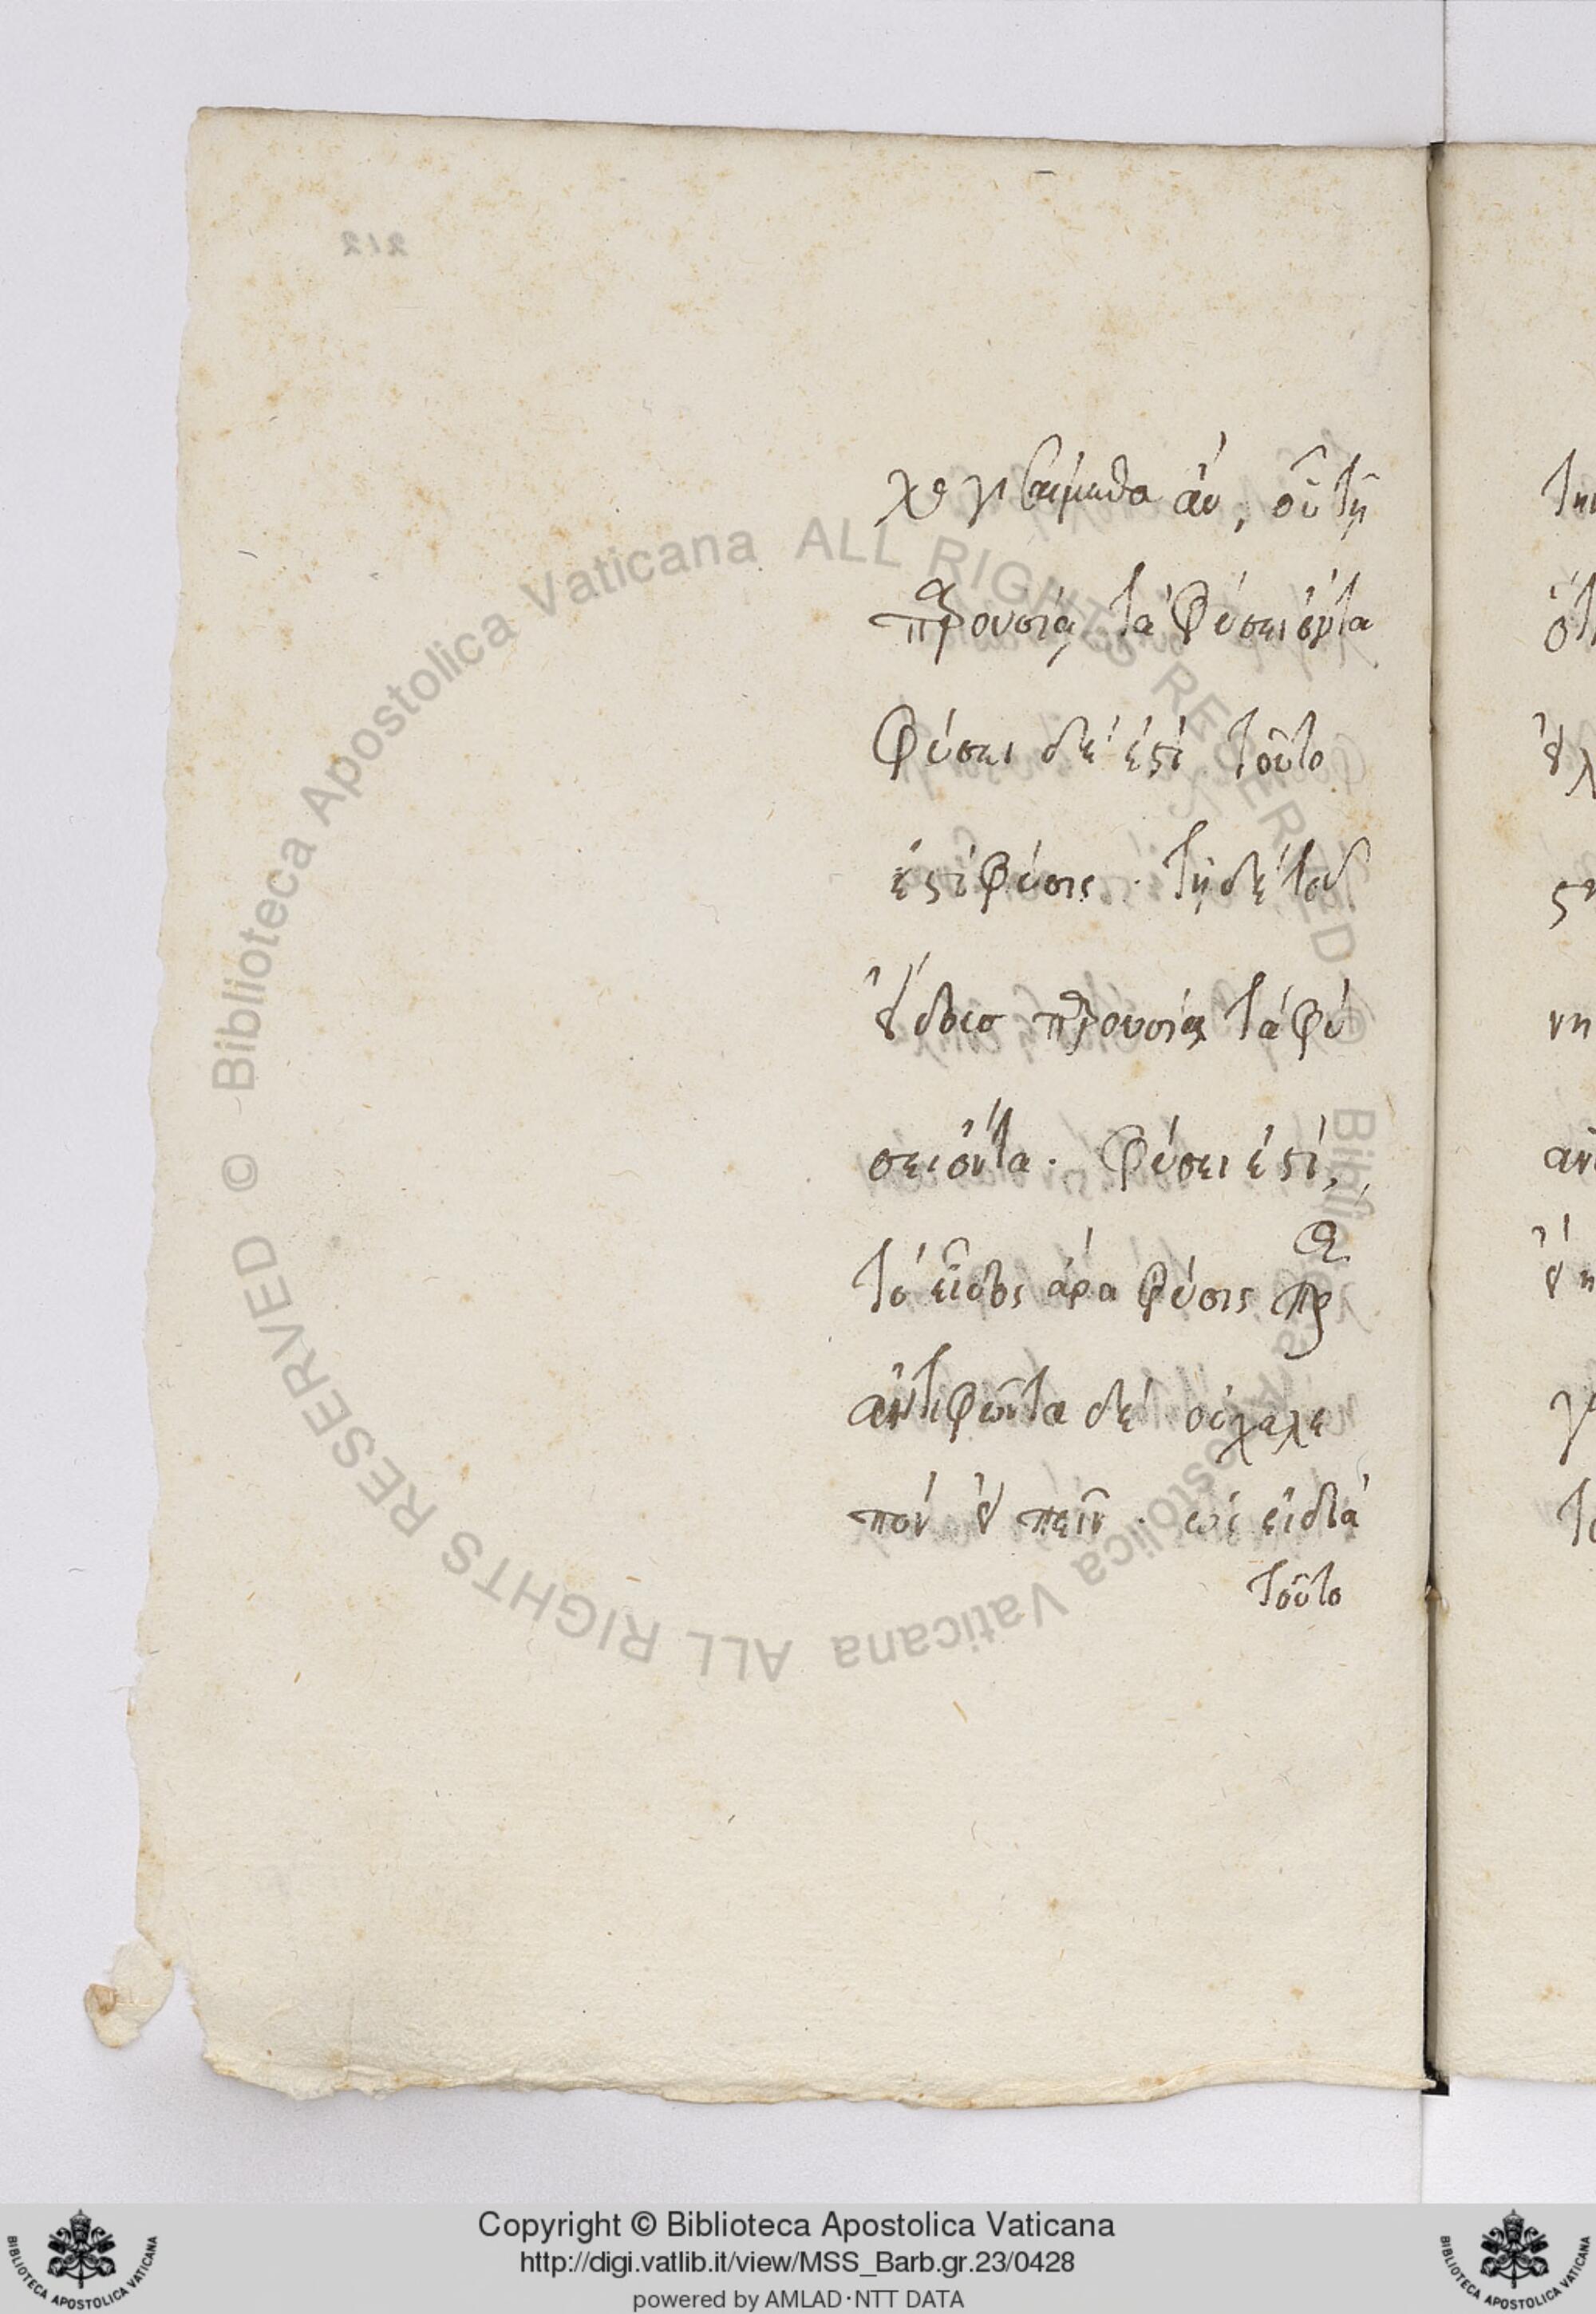 212
οὗ τῇ
παρουσίᾳ τὰ φύσει ὄντα
φύσει δέ ἐστι τοῦτο
ἐστὶ φύσις · τῇ δὲ τοῦ
εἴδους παρουσίᾳ τὰ φύ
σει ὄντα · φύσει ἐστί,
τὸ εἶδος ἄρα φύσις
ἀντιφῶντα δὲ οὐ χαλε
πὸν εἰπεῖν · ὡς εἰ διὰ
τοῦτο
© Biblioteca Apostolica Vaticana ALL RIGHTS RESERVED © Biblioteca Apostolica Vaticana ALL RIGHTS RESERVED
Copyright © Biblioteca Apostolica Vaticana
http://digi.vatlib.it/view/MSS_Barb.gr.23/0428
powered by AMLAD·NTT DATA
BIBLIOTECA APOSTOLICA VATICANA
BIBLIOTECA APOSTOLICA VATICANA